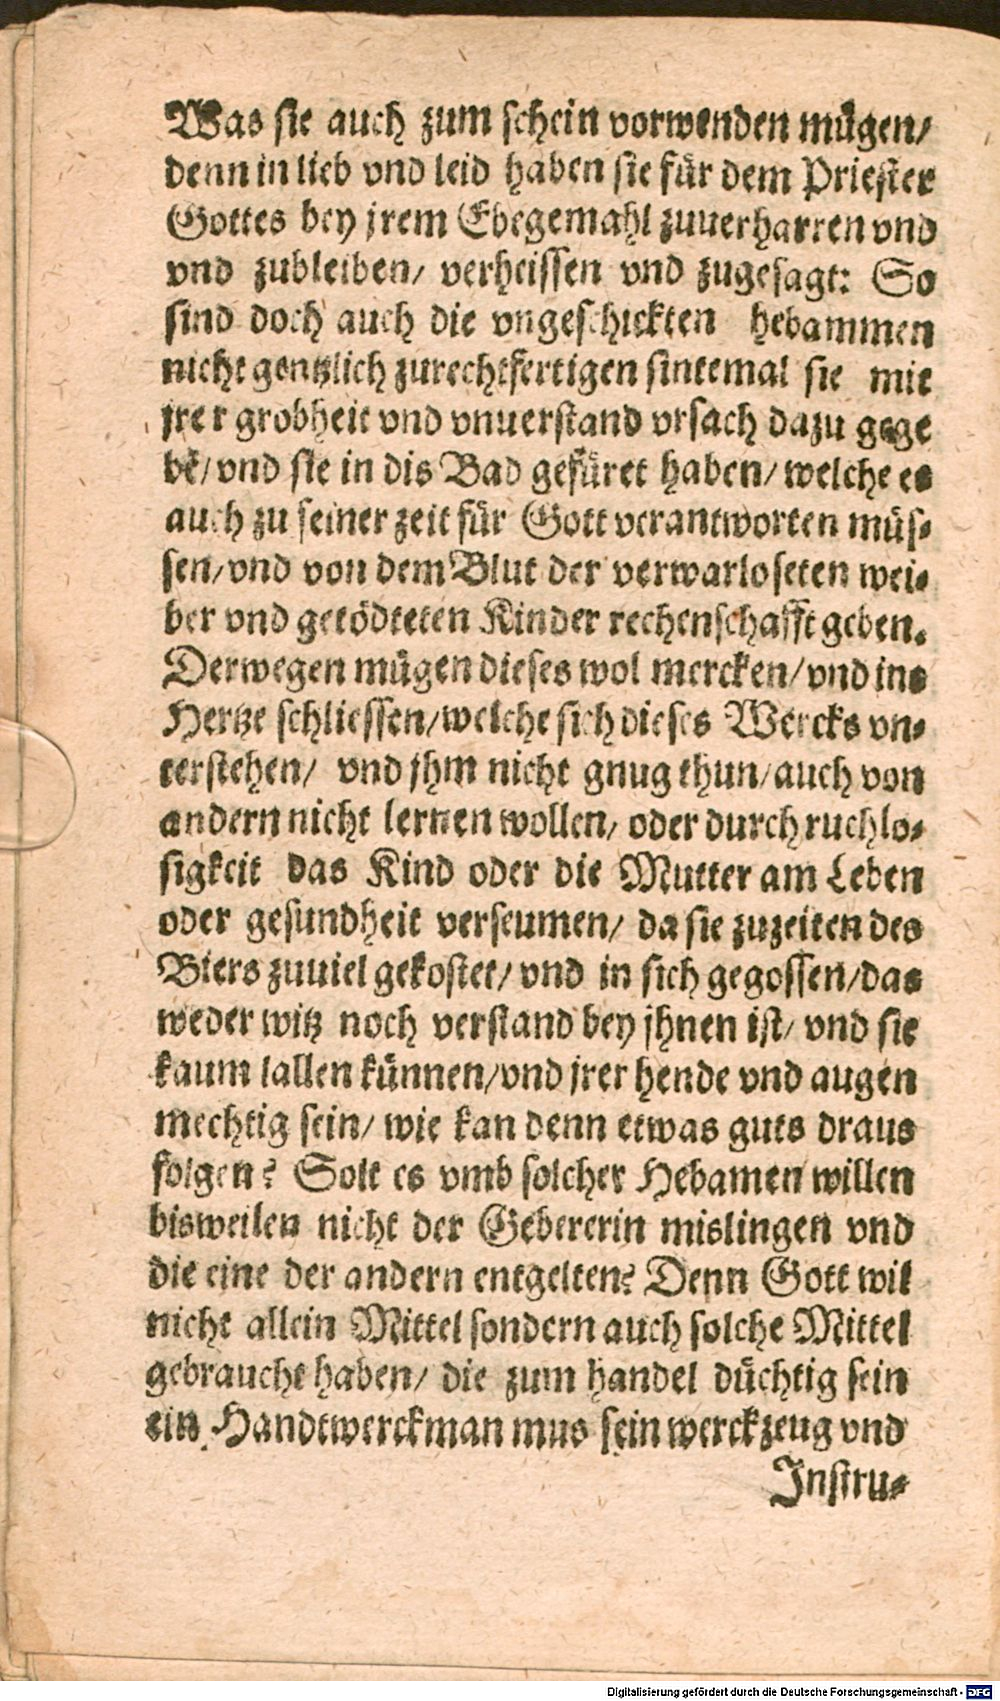 Was sie auch zum schein vorwenden mügen/
denn in lieb vnd leid haben sie für dem Priester
Gottes bey jrem Ehegemahl zuuerharren vnd
vnd zubleiben/ verheissen vnd zugesagt: So
sind doch auch die vngeschickten hebammen
nicht gentzlich zurechtfertigen sintemal sie mit
jrer grobheit vnd vnuerstand vrsach dazu gege
bē/ vnd sie in dis Bad gefüret haben/ welche es
auch zu seiner zeit für Gott verantworten müs-
sen/ vnd von dem Blut der verwarloseten wei-
ber vnd getödteten Kinder rechenschafft geben.
Derwegen mügen dieses wol mercken/ vnd ins
Hertze schliessen/ welche sich dieses Wercks vn-
terstehen/ vnd jhm nicht gnug thun/ auch von
andern nicht lernen wollen/ oder durch ruchlo-
sigkeit das Kind oder die Mutter am Leben
oder gesundheit verseumen/ da sie zuzeiten des
Biers zuuiel gekostet/ vnd in sich gegossen/ das
weder witz noch verstand bey jhnen ist/ vnd sie
kaum lallen künnen/ vnd jrer hende vnd augen
mechtig sein/ wie kan denn etwas guts draus
folgen? Solt es vmb solcher Hebamen willen
bisweilen nicht der Gebererin mislingen vnd
die eine der andern entgelten? Denn Gott wil
nicht allein Mittel sondern auch solche Mittel
gebraucht haben/ die zum handel düchtig sein
ein Handtwerckman mus sein werckzeug vnd
Instru-
Digitalisierung gefördert durch die Deutsche Forschungsgemeinschaft - DFG